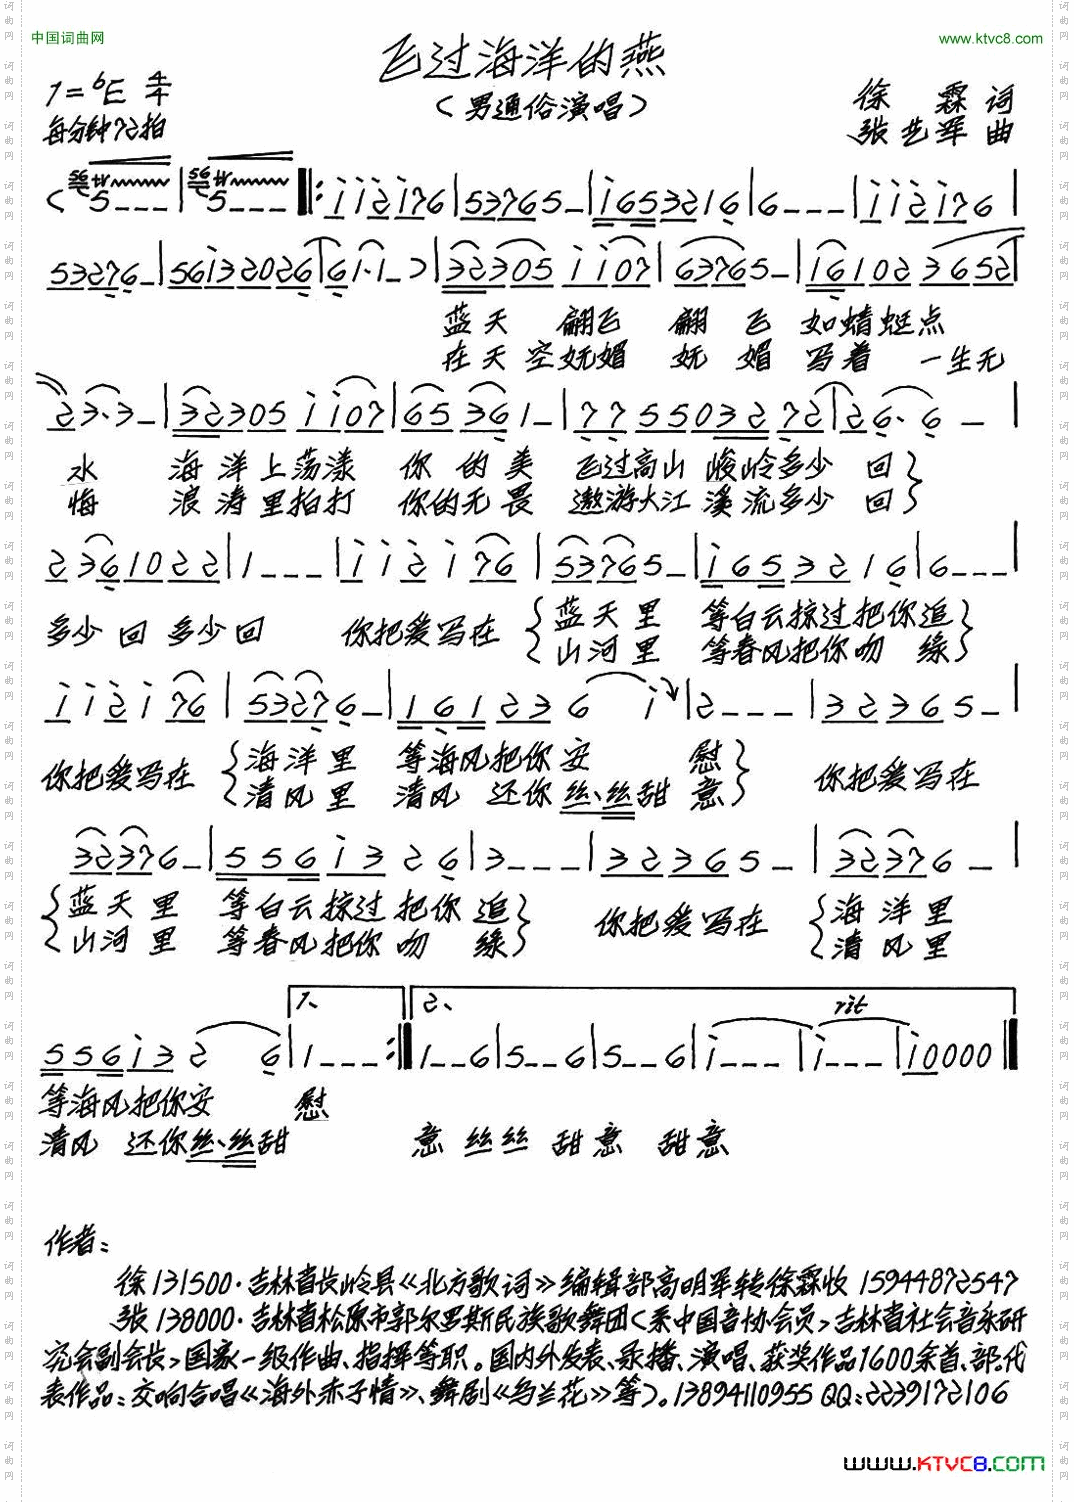 中国词曲网
www.ktvc8.com
飞过海洋的燕
(男通俗演唱)
1=bE 4/4
每分钟72拍
徐 霖 词
张艺军 曲
蓝天 翩飞 翩飞 如蜻蜓点
在天空妩媚 妩媚 写着 一生无
水 海洋上荡漾 你的美 飞过高山 峻岭多少 回
悔 浪涛里拍打 你的无畏 遨游大江 溪流多少 回
多少回 多少回 你把爱写在 蓝天里 等白云掠过把你追
山河里 等春风把你吻 绿
你把爱写在 海洋里 等海风把你安 慰 你把爱写在
清风里 清风 还你丝、丝甜 意
蓝天里 等白云掠过把你追 你把爱写在 海洋里
山河里 等春风把你吻 绿 清风里
1、 2、 rit
等海风把你安 慰
清风 还你丝、丝甜 意 丝丝 甜意 甜意
作者:
徐131500·吉林省长岭县《北方歌词》编辑部高明军转徐霖收 15944872547
张138000·吉林省松原市郭尔罗斯民族歌舞团(系中国音协会员>吉林省社会音乐研
究会副会长>国家一级作曲、指挥等职。国内外发表、录播、演唱、获奖作品1600余首、部.代
表作品:交响合唱《海外赤子情》、舞剧《乌兰花》等)。13894110955 QQ:2239172106
www.KTVC8.com